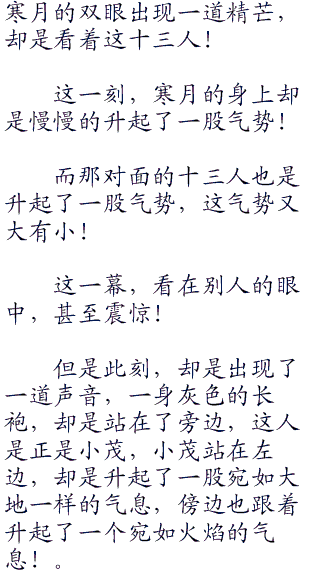 寒月的双眼出现一道精芒，
却是看着这十三人！
这一刻，寒月的身上却
是慢慢的升起了一股气势！
而那对面的十三人也是
升起了一股气势，这气势又
大有小！
这一幕，看在别人的眼
中，甚至震惊！
但是此刻，却是出现了
一道声音，一身灰色的长
袍，却是站在了旁边，这人
是正是小茂，小茂站在左
边，却是升起了一股宛如大
地一样的气息，傍边也跟着
升起了一个宛如火焰的气
息！。